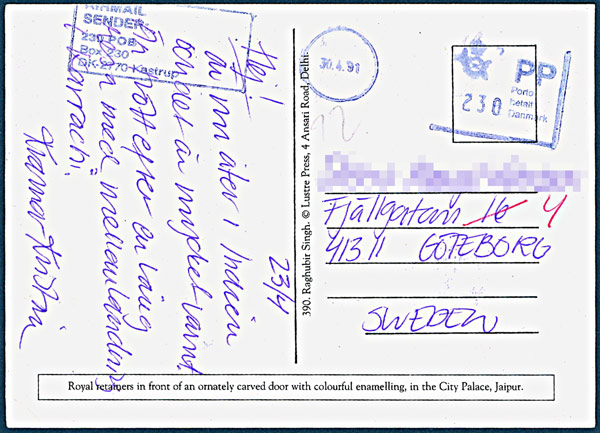 AIRMAIL
SENDER:
230 POB
Box 230
DK-2770 Kastrup
Hej! 23/4
är nu åter i Indien
är mycket varmt
trött efter en lång
med mellanlandning
Karachi.
Kramar Kristin
390. Raghubir Singh. © Lustre Press, 4 Ansari Road, Delhi.
30.4.91
230
PP
Porto
betalt
Danmark
12
Fjällgatan 16 4
413 11 GÖTEBORG
SWEDEN
Royal retainers in front of an ornately carved door with colourful enamelling, in the City Palace, Jaipur.